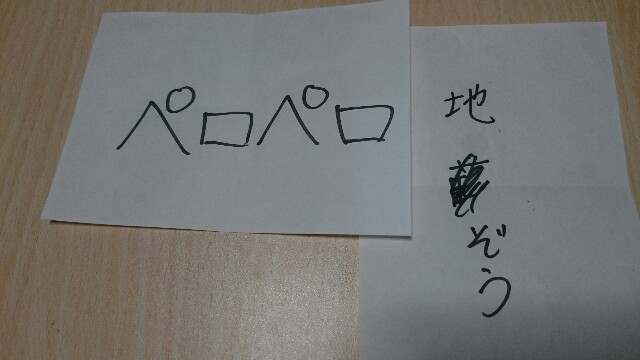 ペロペロ
地ぞう